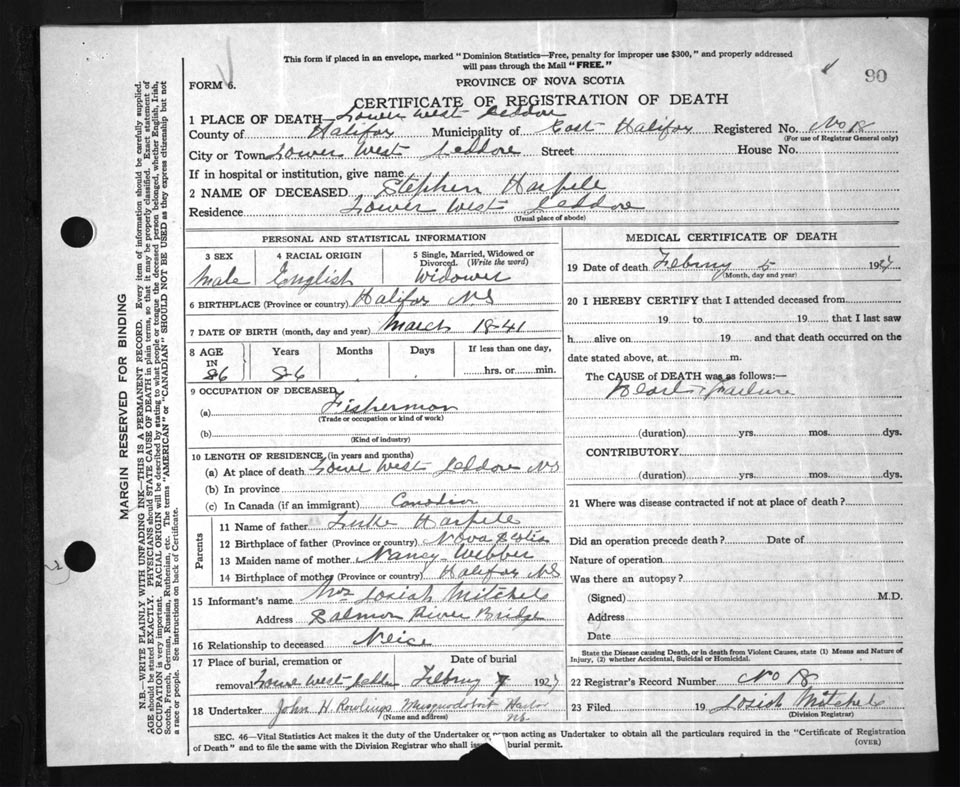 This form if placed in an envelope, marked "Dominion Statistics—Free, penalty for improper use $300," and properly addressed
will pass through the Mail "FREE."
90
FORM 6.
PROVINCE OF NOVA SCOTIA
CERTIFICATE OF REGISTRATION OF DEATH
1 PLACE OF DEATH Lower West Jeddore
County of Halifax Municipality of East Halifax Registered No. No 18
(For use of Registrar General only)
City or Town Lower West Jeddore Street House No.
If in hospital or institution, give name
2 NAME OF DECEASED Stephen Harpele
Residence Lower West Jeddore
(Usual place of abode)
PERSONAL AND STATISTICAL INFORMATION
3 SEX 4 RACIAL ORIGIN 5 Single, Married, Widowed or Divorced. (Write the word)
Male English Widower
6 BIRTHPLACE (Province or country) Halifax NS
7 DATE OF BIRTH (month, day and year) March 1841
8 AGE IN Years Months Days If less than one day,
86 86 hrs. or min.
9 OCCUPATION OF DECEASED
(a) Fisherman
(Trade or occupation or kind of work)
(b)
(Kind of industry)
10 LENGTH OF RESIDENCE (in years and months)
(a) At place of death Lowe West Jeddore NS
(b) In province
(c) In Canada (if an immigrant) Canadian
Parents
11 Name of father Luke Harpele
12 Birthplace of father (Province or country) Nova Scotia
13 Maiden name of mother Nancy Webber
14 Birthplace of mother (Province or country) Halifax NS
15 Informant's name Mrs Josiah Mitchel
Address Salmon River Bridge
16 Relationship to deceased Neice
17 Place of burial, cremation or Date of burial
removal Lowe West Jeddore Febury 7 1927
18 Undertaker John H Rawlings Musquodoboit Harbor
NS.
(Name and address)
MEDICAL CERTIFICATE OF DEATH
19 Date of death Febury 5 1927
(Month, day and year)
20 I HEREBY CERTIFY that I attended deceased from
19 to 19 that I last saw
h alive on 19 and that death occurred on the
date stated above, at m.
The CAUSE of DEATH was as follows:—
Heart Failure
(duration) yrs. mos. dys.
CONTRIBUTORY
(duration) yrs. mos. dys.
21 Where was disease contracted if not at place of death?
Did an operation precede death? Date of
Nature of operation
Was there an autopsy?
(Signed) M.D.
Address
Date
State the Disease causing Death, or in death from Violent Causes, state (1) Means and Nature of
Injury, (2) whether Accidental, Suicidal or Homicidal.
22 Registrar's Record Number No 18
23 Filed 19 Josiah Mitchel
(Division Registrar)
SEC. 46—Vital Statistics Act makes it the duty of the Undertaker or person acting as Undertaker to obtain all the particulars required in the "Certificate of Registration
of Death" and to file the same with the Division Registrar who shall issue burial permit.
(OVER)
MARGIN RESERVED FOR BINDING
N.B.—WRITE PLAINLY WITH UNFADING INK—THIS IS A PERMANENT RECORD. Every item of information should be carefully supplied.
AGE should be stated EXACTLY. PHYSICIANS should STATE CAUSE OF DEATH in plain terms, so that it may be properly classified. Exact statement of
OCCUPATION is very important. RACIAL ORIGIN will be described by stating to what people or tongue the deceased person belonged, whether English, Irish,
Scotch, French, German, Russian, Ruthenian, etc. The terms "AMERICAN" or "CANADIAN" SHOULD NOT BE USED as they express citizenship but not
a race or people. See instructions on back of Certificate.